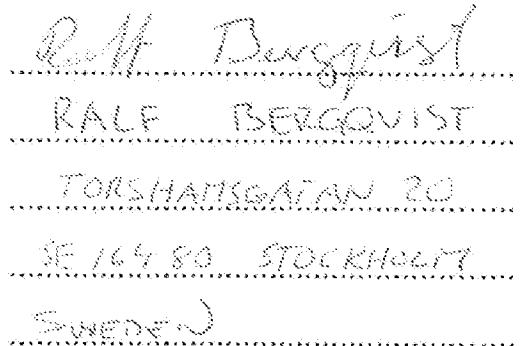 Ralf Bergqvist
RALF BERGQVIST
TORSHAMSGATAN 20
SE 164 80 STOCKHOLM
SWEDEN